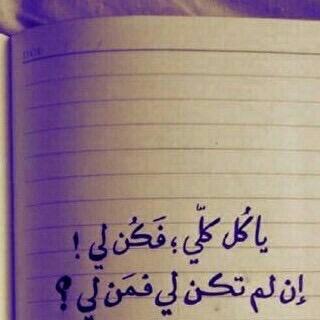 ياكُل كلّي ؛ فَكُن لي !
إن لم تكن لي فمَن لي ؟